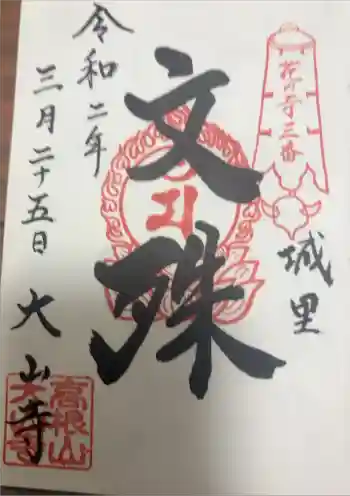 城里
文殊
令和二年
三月二十五日
大山寺
高根山
大山寺